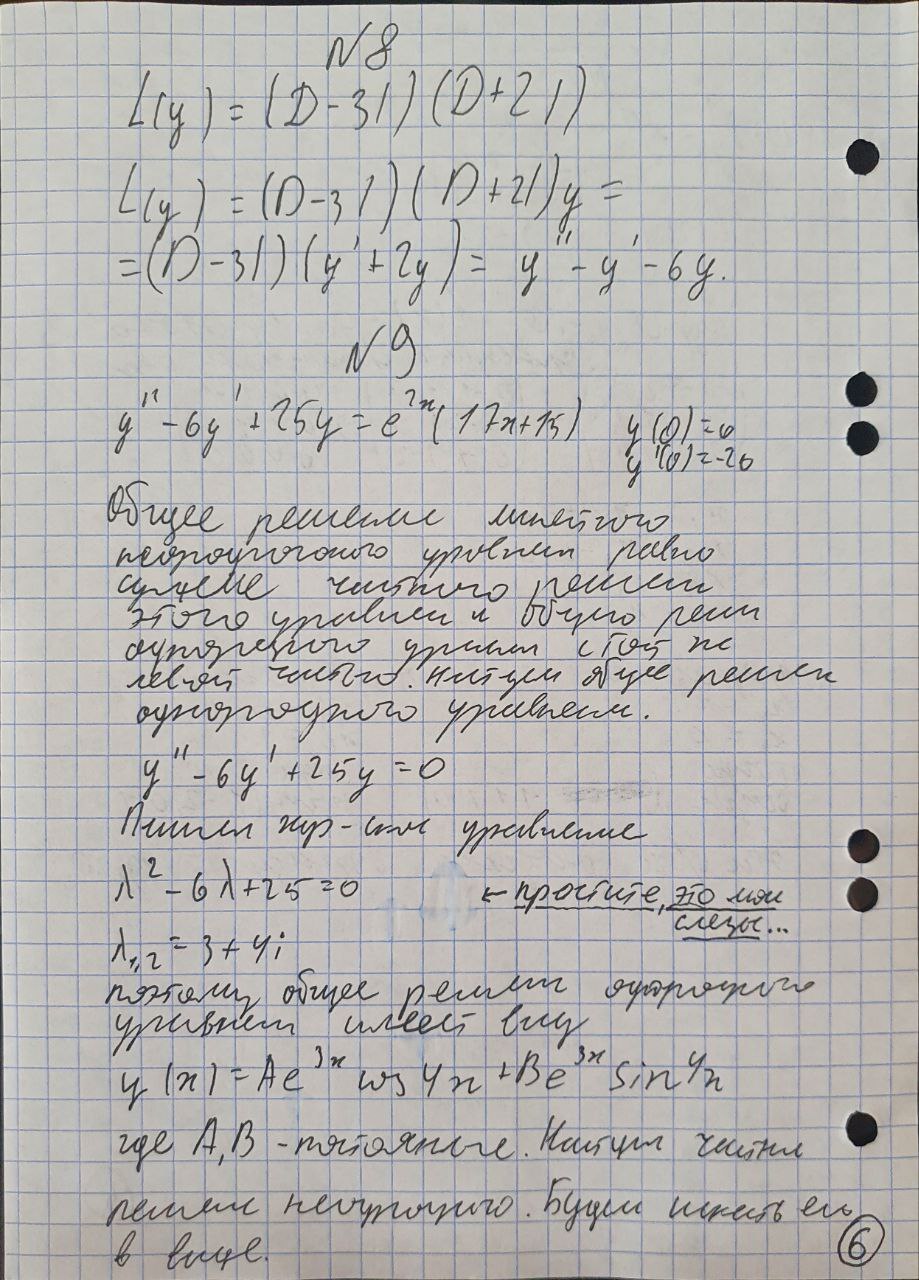 N8
L(y) = (D-3I)(D+2I)
L(y) = (D-3I)(D+2I)y =
=(D-3I)(y'+2y) = y''-y'-6y.
N9
y''-6y'+25y=e^{2x}(17x+15) y(0)=0
y'(0)=-26
Общее решение линейного
уравнен равно
сумме частного решен
этого уравнен и общего реш
с той же
левой частью. Найдем общее решен
однородного уравнен.
y''-6y'+25y=0
Пишем хар-ское уравнение
λ²-6λ+25=0 ← простите, это мои
слезы...
λ₁,₂=3+4i
поэтому общее решен однородного
уравнен имеет вид
y(x)=Ae^{3x} cos4x+Be^{3x} sin4x
где A,B - постоянные. Найдем частн
решен неоднродного. Будем искать его
в виде.
6